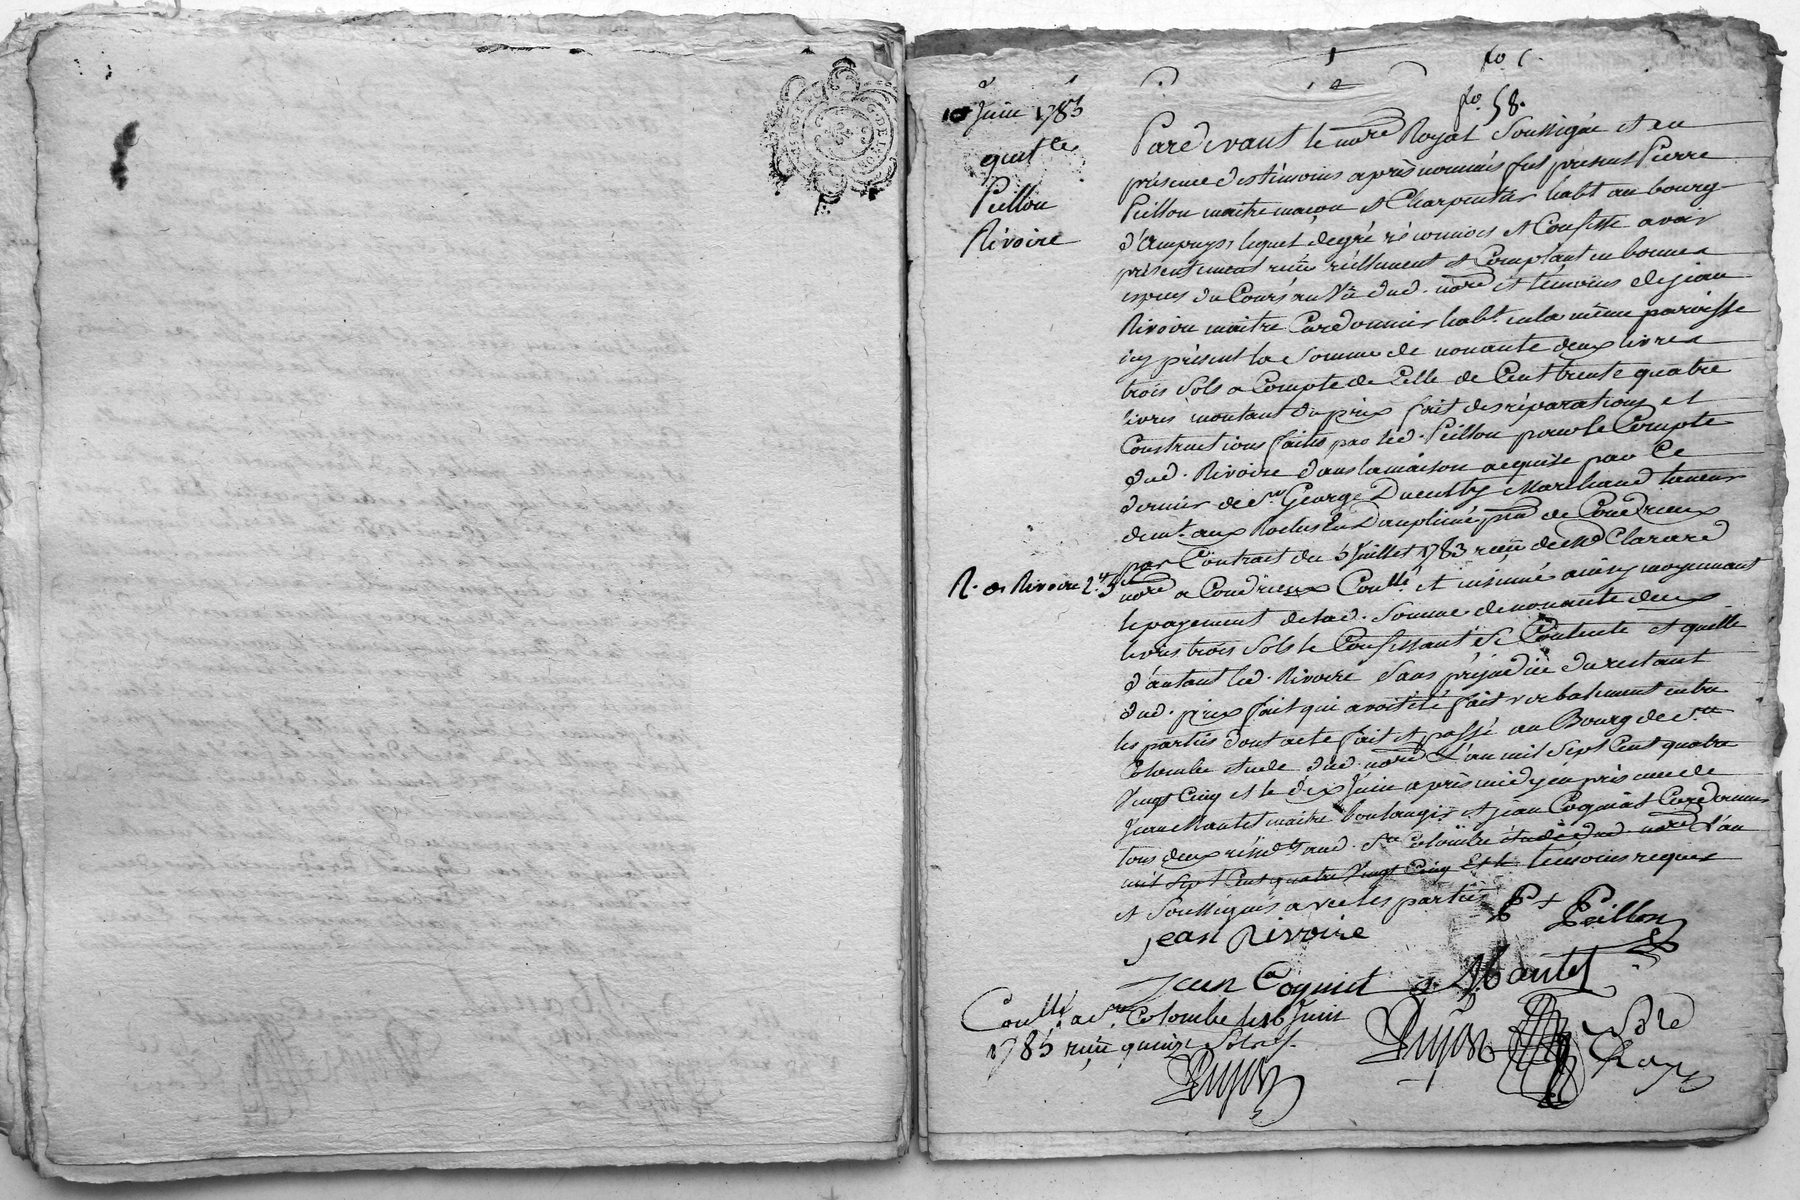 fo 58.
10 Juin 1785
quitce
Peillon
Rivoire
Pardevant le nore Royal Soussigné et en
présence des témoins après nommés fut présent Pierre
Peillon maitre maçon et Charpentier habt au bourg
d'ampuys, lequel de gré réconnoit et Confesse avoir
présentement reçu réellement et Comptant en bonnes
espèces du Cours au Vû dud. nore et témoins de jean
Rivoire maitre Cordonnier habt. en la même paroisse
icy présent la Somme de nonante deux livres
trois Sols a Compte de Celle de Cent trente quatre
livres montant du prix fait des réparations et
Constructions faites par led. Peillon pour le Compte
dud. Rivoire dans la maison acquise par Ce
dernier de sr George Marchand taneur
demt. aux Roches En Dauphiné, de Condrieux
par Contrat du 5 Juillet 1783 reçu de Me Clarard
R. de Rivoire
nore a Condrieux Conllé. et insinué ainsy moyennant
le payement de lad. Somme de nonante deux
livres trois Sols le Confessant Se Contente et quitte
d'autant led. Rivoire Sans préjudice du restant
dud. prix fait qui avoit été fait verbalement entre
les parties dont acte fait et passé au Bourg de Ste
Colombe etude dud. nore L'an mil Sept Cent quatre
Vingt Cinq et le dix Juin après midy en présence de
Jean Mantet maitre boulanger et jean Cognet Cordonnier
tous deux résidts aud. Ste Colombe étude dud. nore L'an
mil Sept Cent quatre Vingt Cinq Et le témoins requis
et Soussignés avec les parties
P Peillon
jean Rivoire
Jean Cognet
Mantet
Conllé. a Ste Colombe le 16 Juin
1785 reçu quinze Sols
Dujon
Dujon nore
Roy